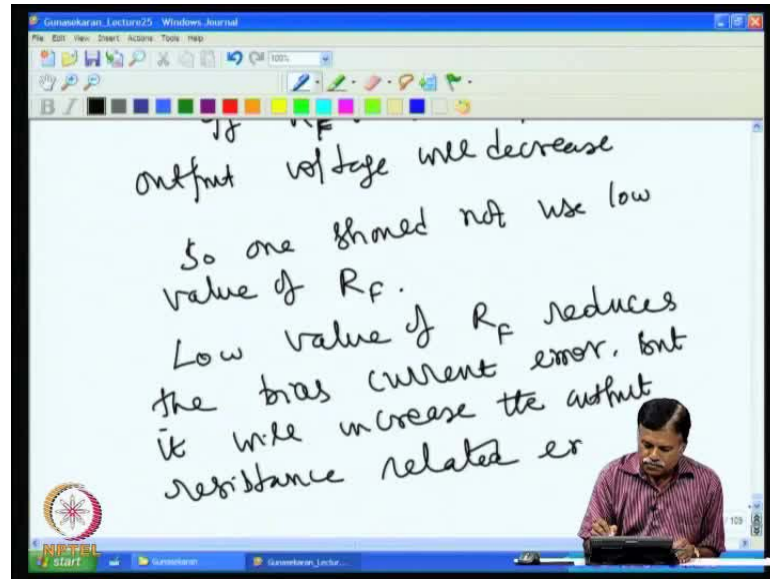 Gunasekaran_Lecture25 - Windows Journal
File Edit View Insert Actions Tools Help
100%
B I
If RF
output voltage will decrease
So one should not use low
value of RF.
Low value of RF reduces
the bias current error. But
it will increase the output
resistance related er
/ 109
NPTEL
start Gunasekaran Gunasekaran_Lectur...